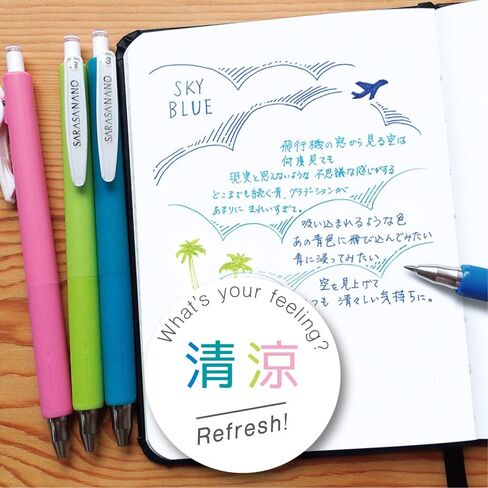 SKY
BLUE
飛行機の窓から見る空は
何度見ても
現実と思えないような 不思議な感じがする
どこまでも続く青、グラデーションが
あまりに きれいすぎて。
吸い込まれるような色
あの青色に飛び込んでみたい
青に浸ってみたい
空を見上げて
ても 清々しい気持ちに。
SARASA NANO
.3
SARASA NANO
.3
What's your feeling?
清涼
Refresh!